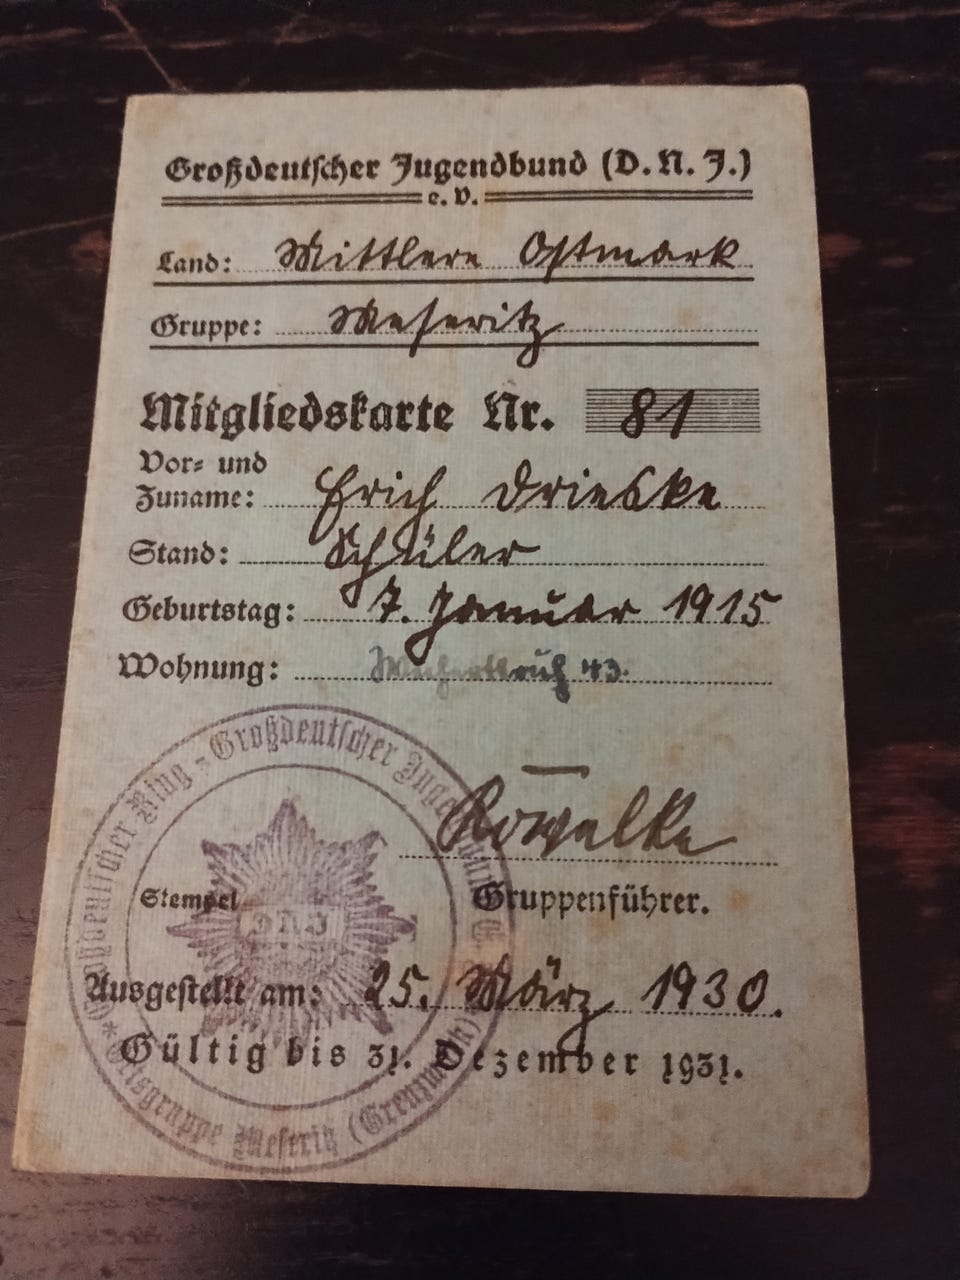 Großdeutscher Jugendbund (D.N.J.)
e.V.
Land: Mittlere Ostmark
Gruppe: Meseritz
Mitgliedskarte Nr. 81
Vor- und
Zuname: Erich Drieske
Stand: Schüler
Geburtstag: 7. Januar 1915
Wohnung: 43.
Gruppenführer.
Stempel
Ausgestellt am: 25. März 1930.
Gültig bis 31. Dezember 1931.
Großdeutscher Ring - Großdeutscher Jugendbund
Ortsgruppe Meseritz (Grenzmark)